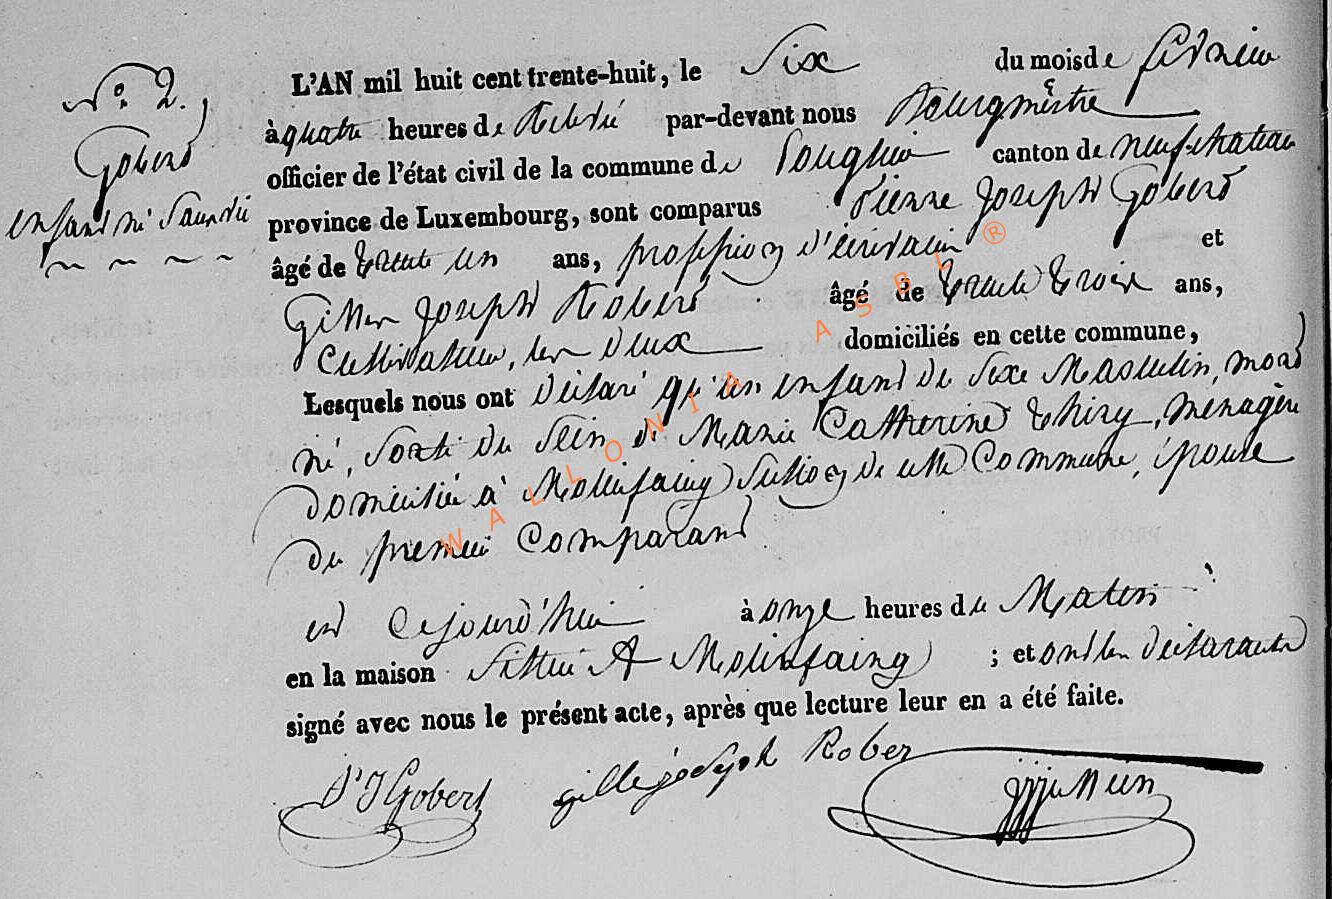 N°. 2.
Gobert
enfant né sans vie
L'AN mil huit cent trente-huit, le Six du mois de février
à quatre heures de Relevé par-devant nous Bourgmêstre
officier de l'état civil de la commune de Longlier canton de neufchateau
province de Luxembourg, sont comparus Pierre Joseph Gobert
âgé de trente un ans, profession d'écrivain et
Gilles Joseph Robert âgé de trente trois ans,
Cultivateur, les deux domiciliés en cette commune,
Lesquels nous ont déclaré qu'un enfant de sexe Masculin, mort
né, sorti du sein de Marie Catherine Thiry, ménagère
domiciliée à Molinfaing section de cette Commune, épouse
du premier Comparant
est Cejourd'hui à onze heures du Matin
en la maison Sittuée A Molinfaing ; et ont les déclarants
signé avec nous le présent acte, après que lecture leur en a été faite.
PJGobert gille joseph Rober
WALLONIA ASBL ®